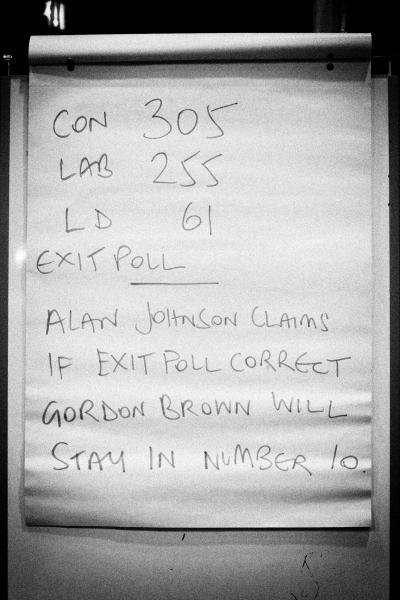 CON 305
LAB 255
LD 61
EXIT POLL
ALAN JOHNSON CLAIMS
IF EXIT POLL CORRECT
GORDON BROWN WILL
STAY IN NUMBER 10.